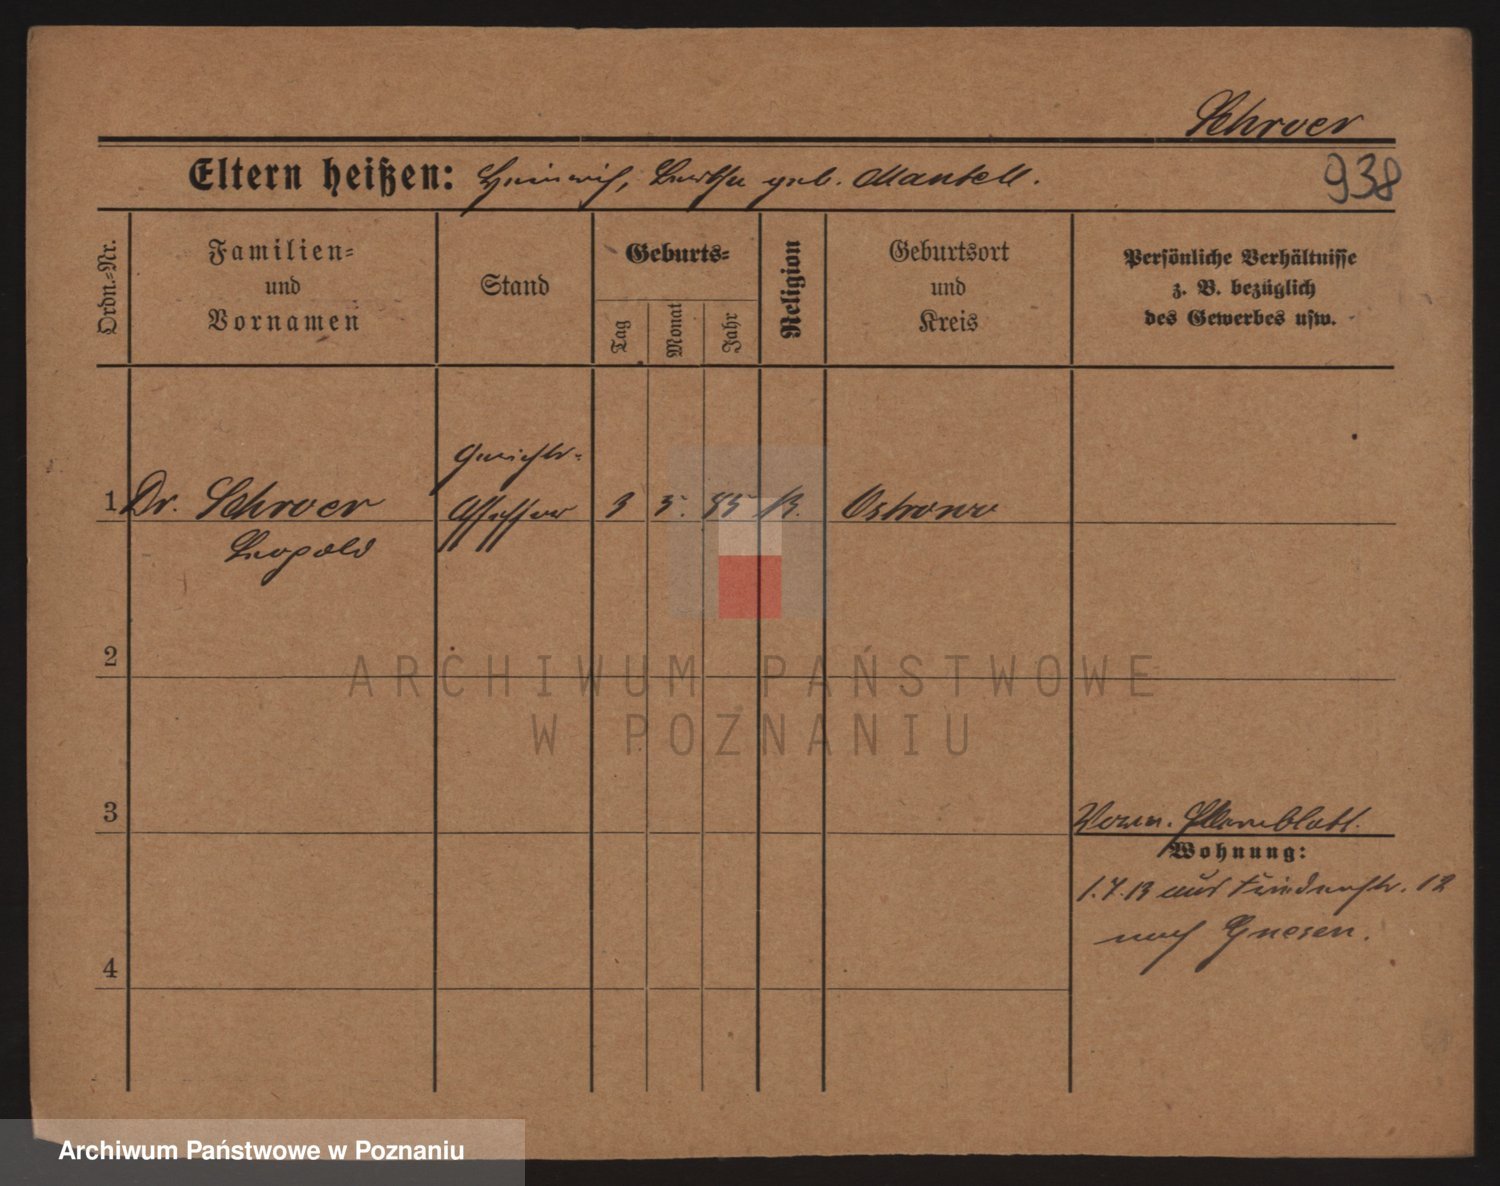 Schroer
938
Eltern heißen: Heinrich, Bertha geb. Mantell.
Ordn.-Nr.
Familien-
und
Vornamen
Stand
Geburts-
Tag
Monat
Jahr
Religion
Geburtsort
und
Kreis
Persönliche Verhältnisse
z. B. bezüglich
des Gewerbes usw.
Gerichts-
1 Dr. Schroer Assessor 3 5. 85 Ostrowo
Leopold
2
ARCHIWUM PAŃSTWOWE
W POZNANIU
3
Wohnung:
1.7.13 aus Friedenstr. 12
nach Gnesen.
4
Archiwum Państwowe w Poznaniu